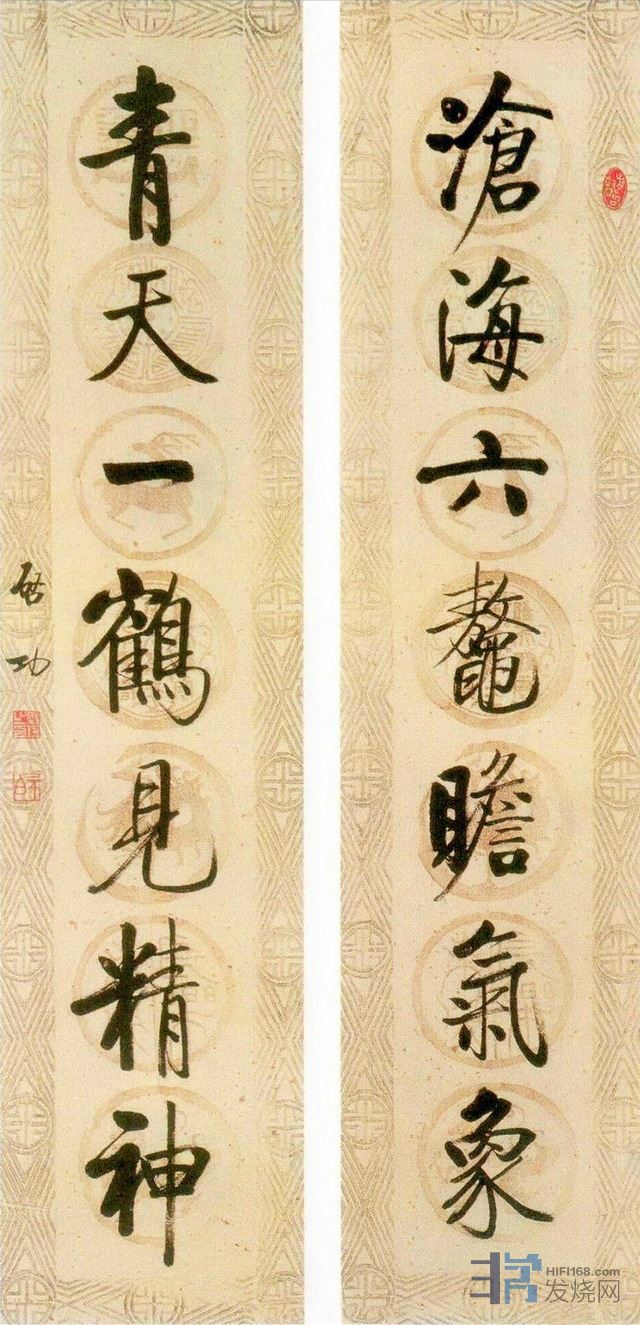 滄海六鼇瞻氣象
青天一鶴見精神
啓功
HIFI168.com
发烧网